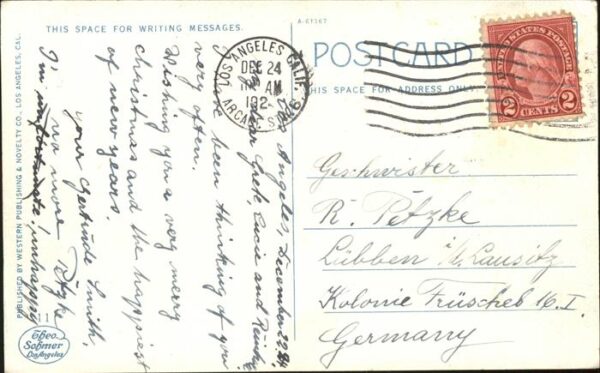 THIS SPACE FOR WRITING MESSAGES.
A-61367
POSTCARD
THIS SPACE FOR ADDRESS ONLY
LOS ANGELES, CALIF.
DEC 24
AM
192
ARCADE STA.
UNITED STATES POSTAGE
2 CENTS 2
Los Angeles, December 22.
My dear Grete, Lucie and
I have been thinking of you
very often.
Wishing you a very merry
Christmas and the happiest
of new years.
your Gertrude Smith.
no more Petzke
I'm unfortunate! unhappy
Geschwister
R. Petzke
Lübben i/ Lausitz
Kolonie Früscheb 16. I.
Germany
PUBLISHED BY WESTERN PUBLISHING & NOVELTY CO., LOS ANGELES, CAL.
11
Theo.
Sohmer
Los Angeles